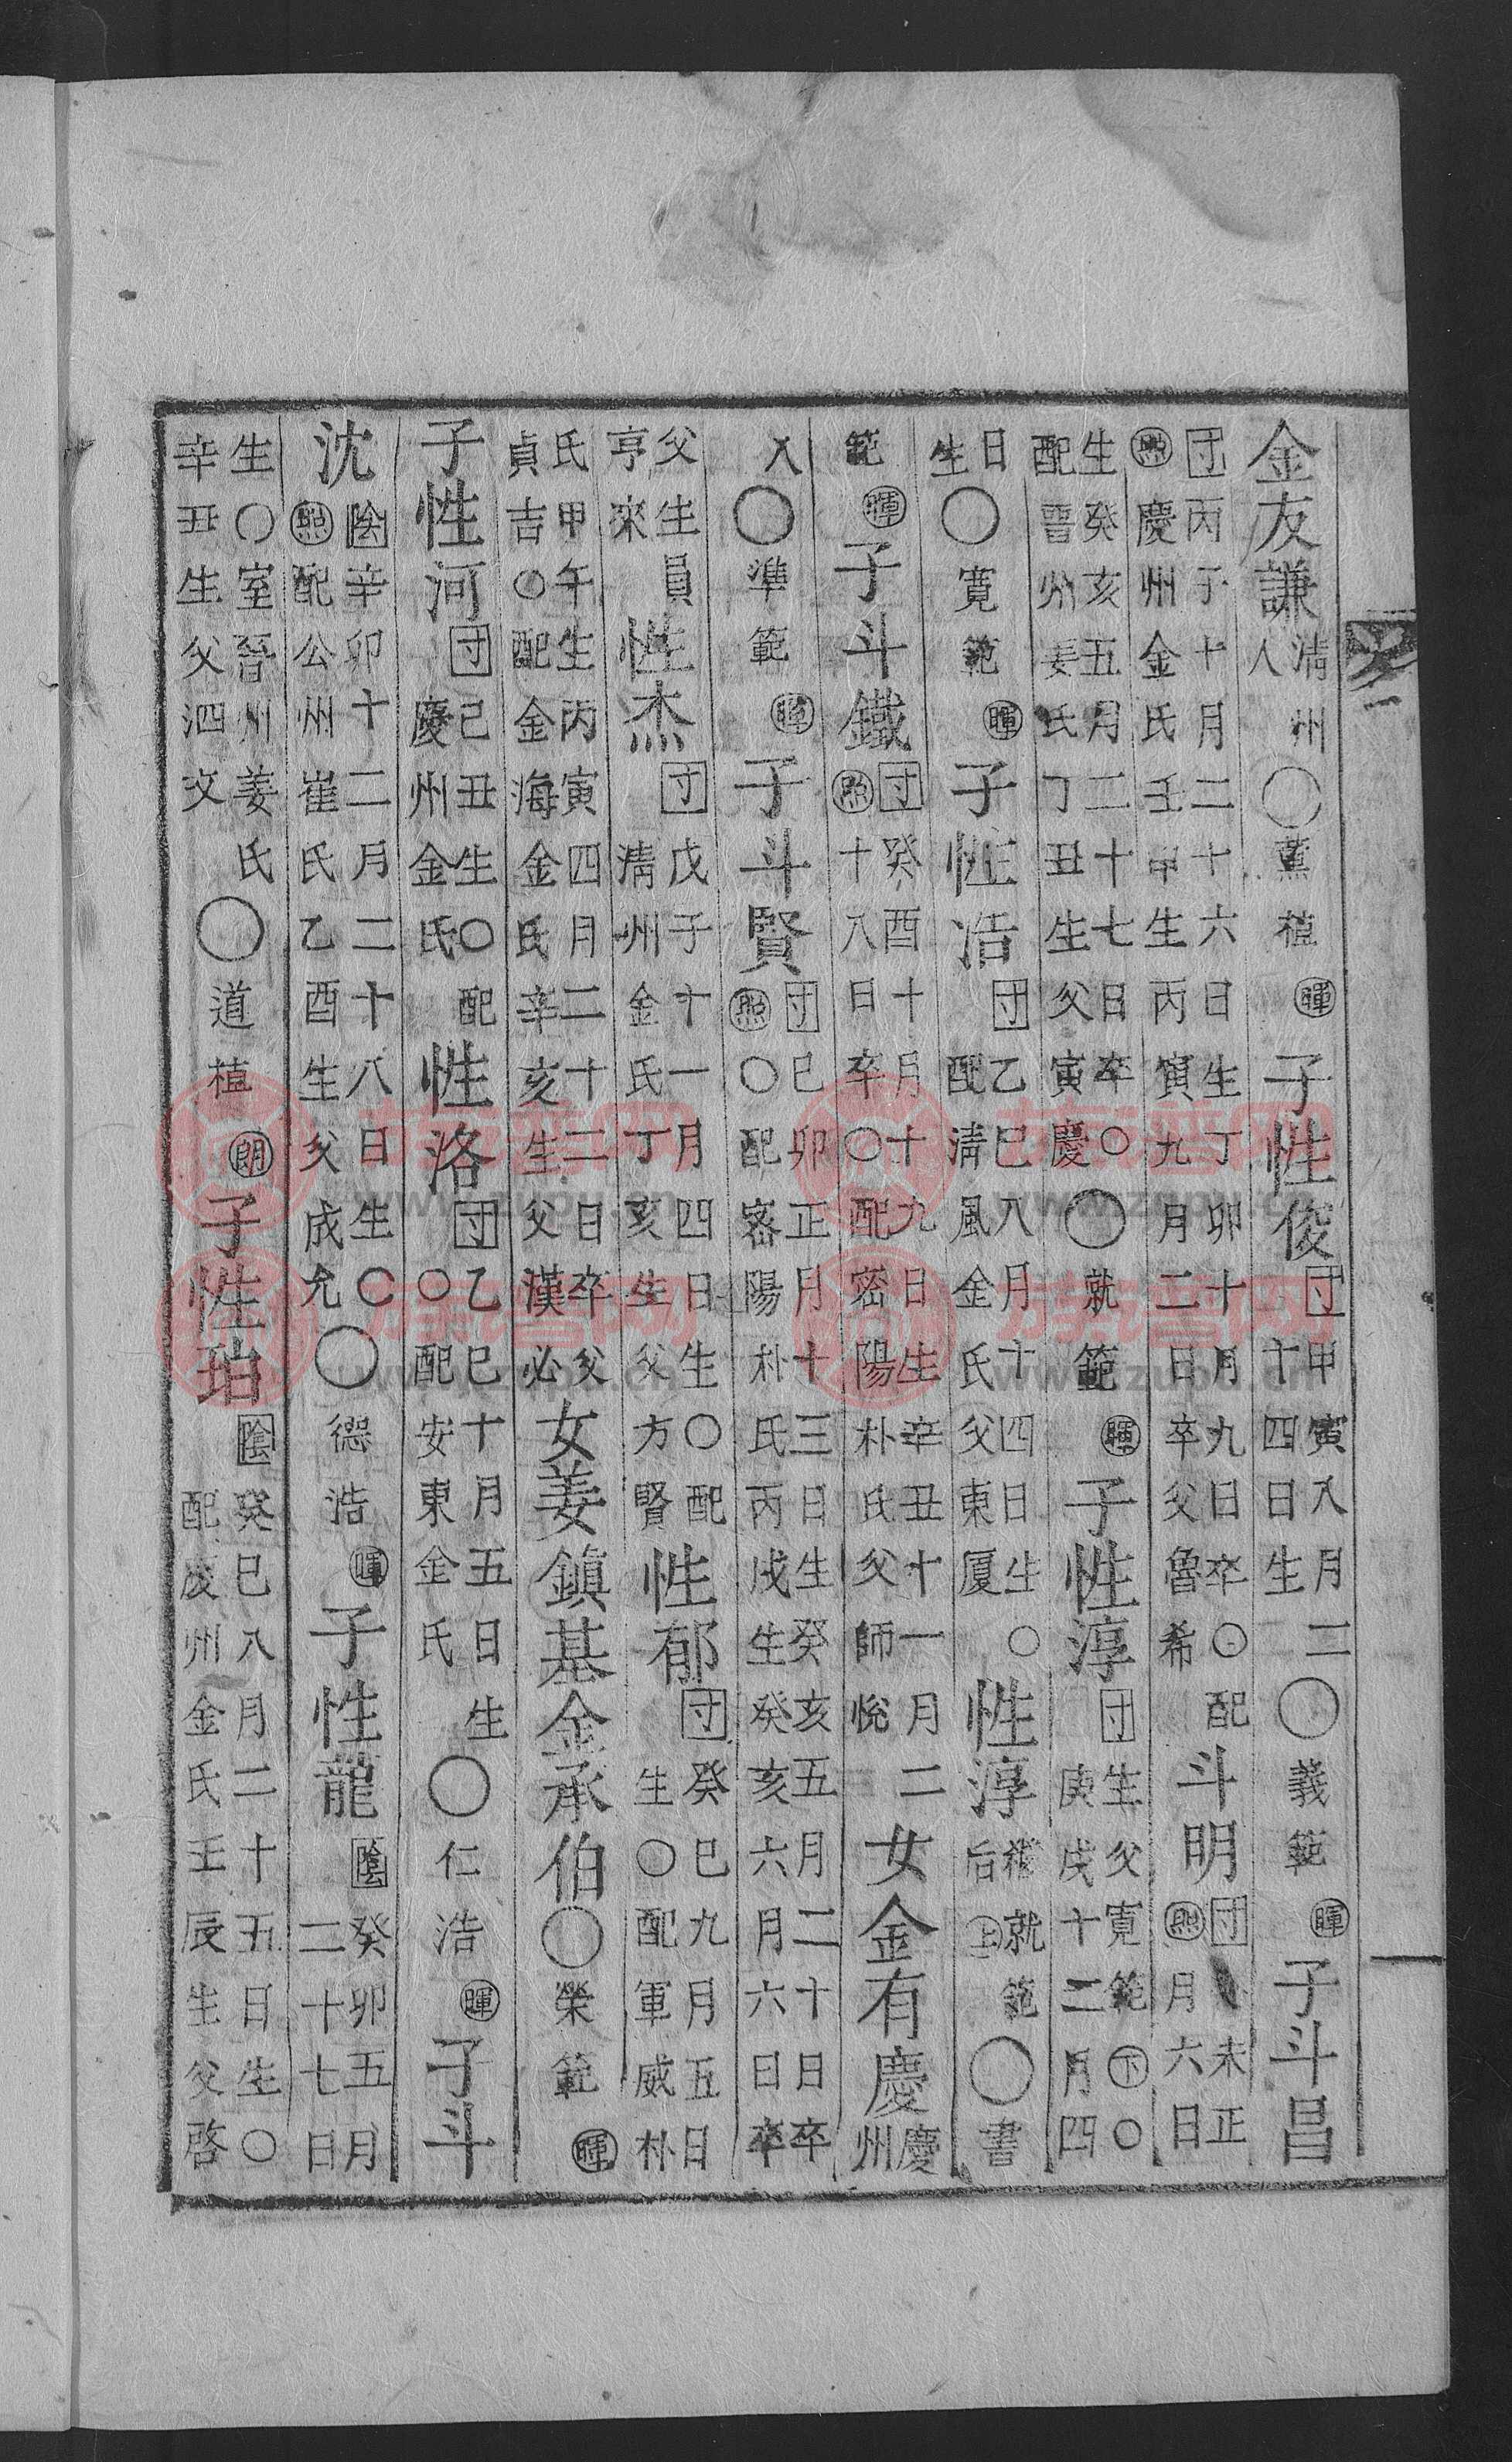 金友謙清州人〇薰植暉子性俊団甲寅八月二十四日生〇義範暉子斗昌
団丙子十月二十六日生丁卯十月九日卒〇配慶州金氏壬申生丙寅九月二日卒父魯希斗明団未正月六日
生癸亥五月二十七日卒〇配晋州姜氏丁丑生父寅慶〇就範暉子性淳団生父寬範下〇庚戌十二月四
日生〇寬範暉子性浩団乙巳八月十四日生〇配清風金氏父東厦性淳就範后上〇書
範暉子斗鐵団癸酉十月十九日生辛丑十一月二熙十八日卒〇配密陽朴氏父師悅女金有慶慶州
入〇準範暉子斗賢団己卯正月十三日生癸亥五月二十日卒熙〇配密陽朴氏丙戌生癸亥六月六日卒
父生員亨來性杰団戊子十一月四日生〇配清州金氏丁亥生父方賢性郁団癸巳九月五日生〇配軍威朴
氏甲午生丙寅四月二十二日卒父貞吉〇配金海金氏辛亥生父漢必女姜鎭基金承伯〇榮範暉
子性河団己丑生〇配慶州金氏性洛団乙巳十月五日生〇配安東金氏〇仁浩暉子斗
沈陰辛卯十二月二十八日生〇熙配公州崔氏乙酉生父成允〇德浩暉子性龍陰癸卯五月二十七日
生〇室晉州姜氏辛丑生父泗文〇道植朗子性珀陰癸巳八月二十五日生〇配慶州金氏壬辰生父啓
族谱网
www.zupu.cn
族谱网
www.zupu.cn
族谱网
www.zupu.cn
族谱网
www.zupu.cn